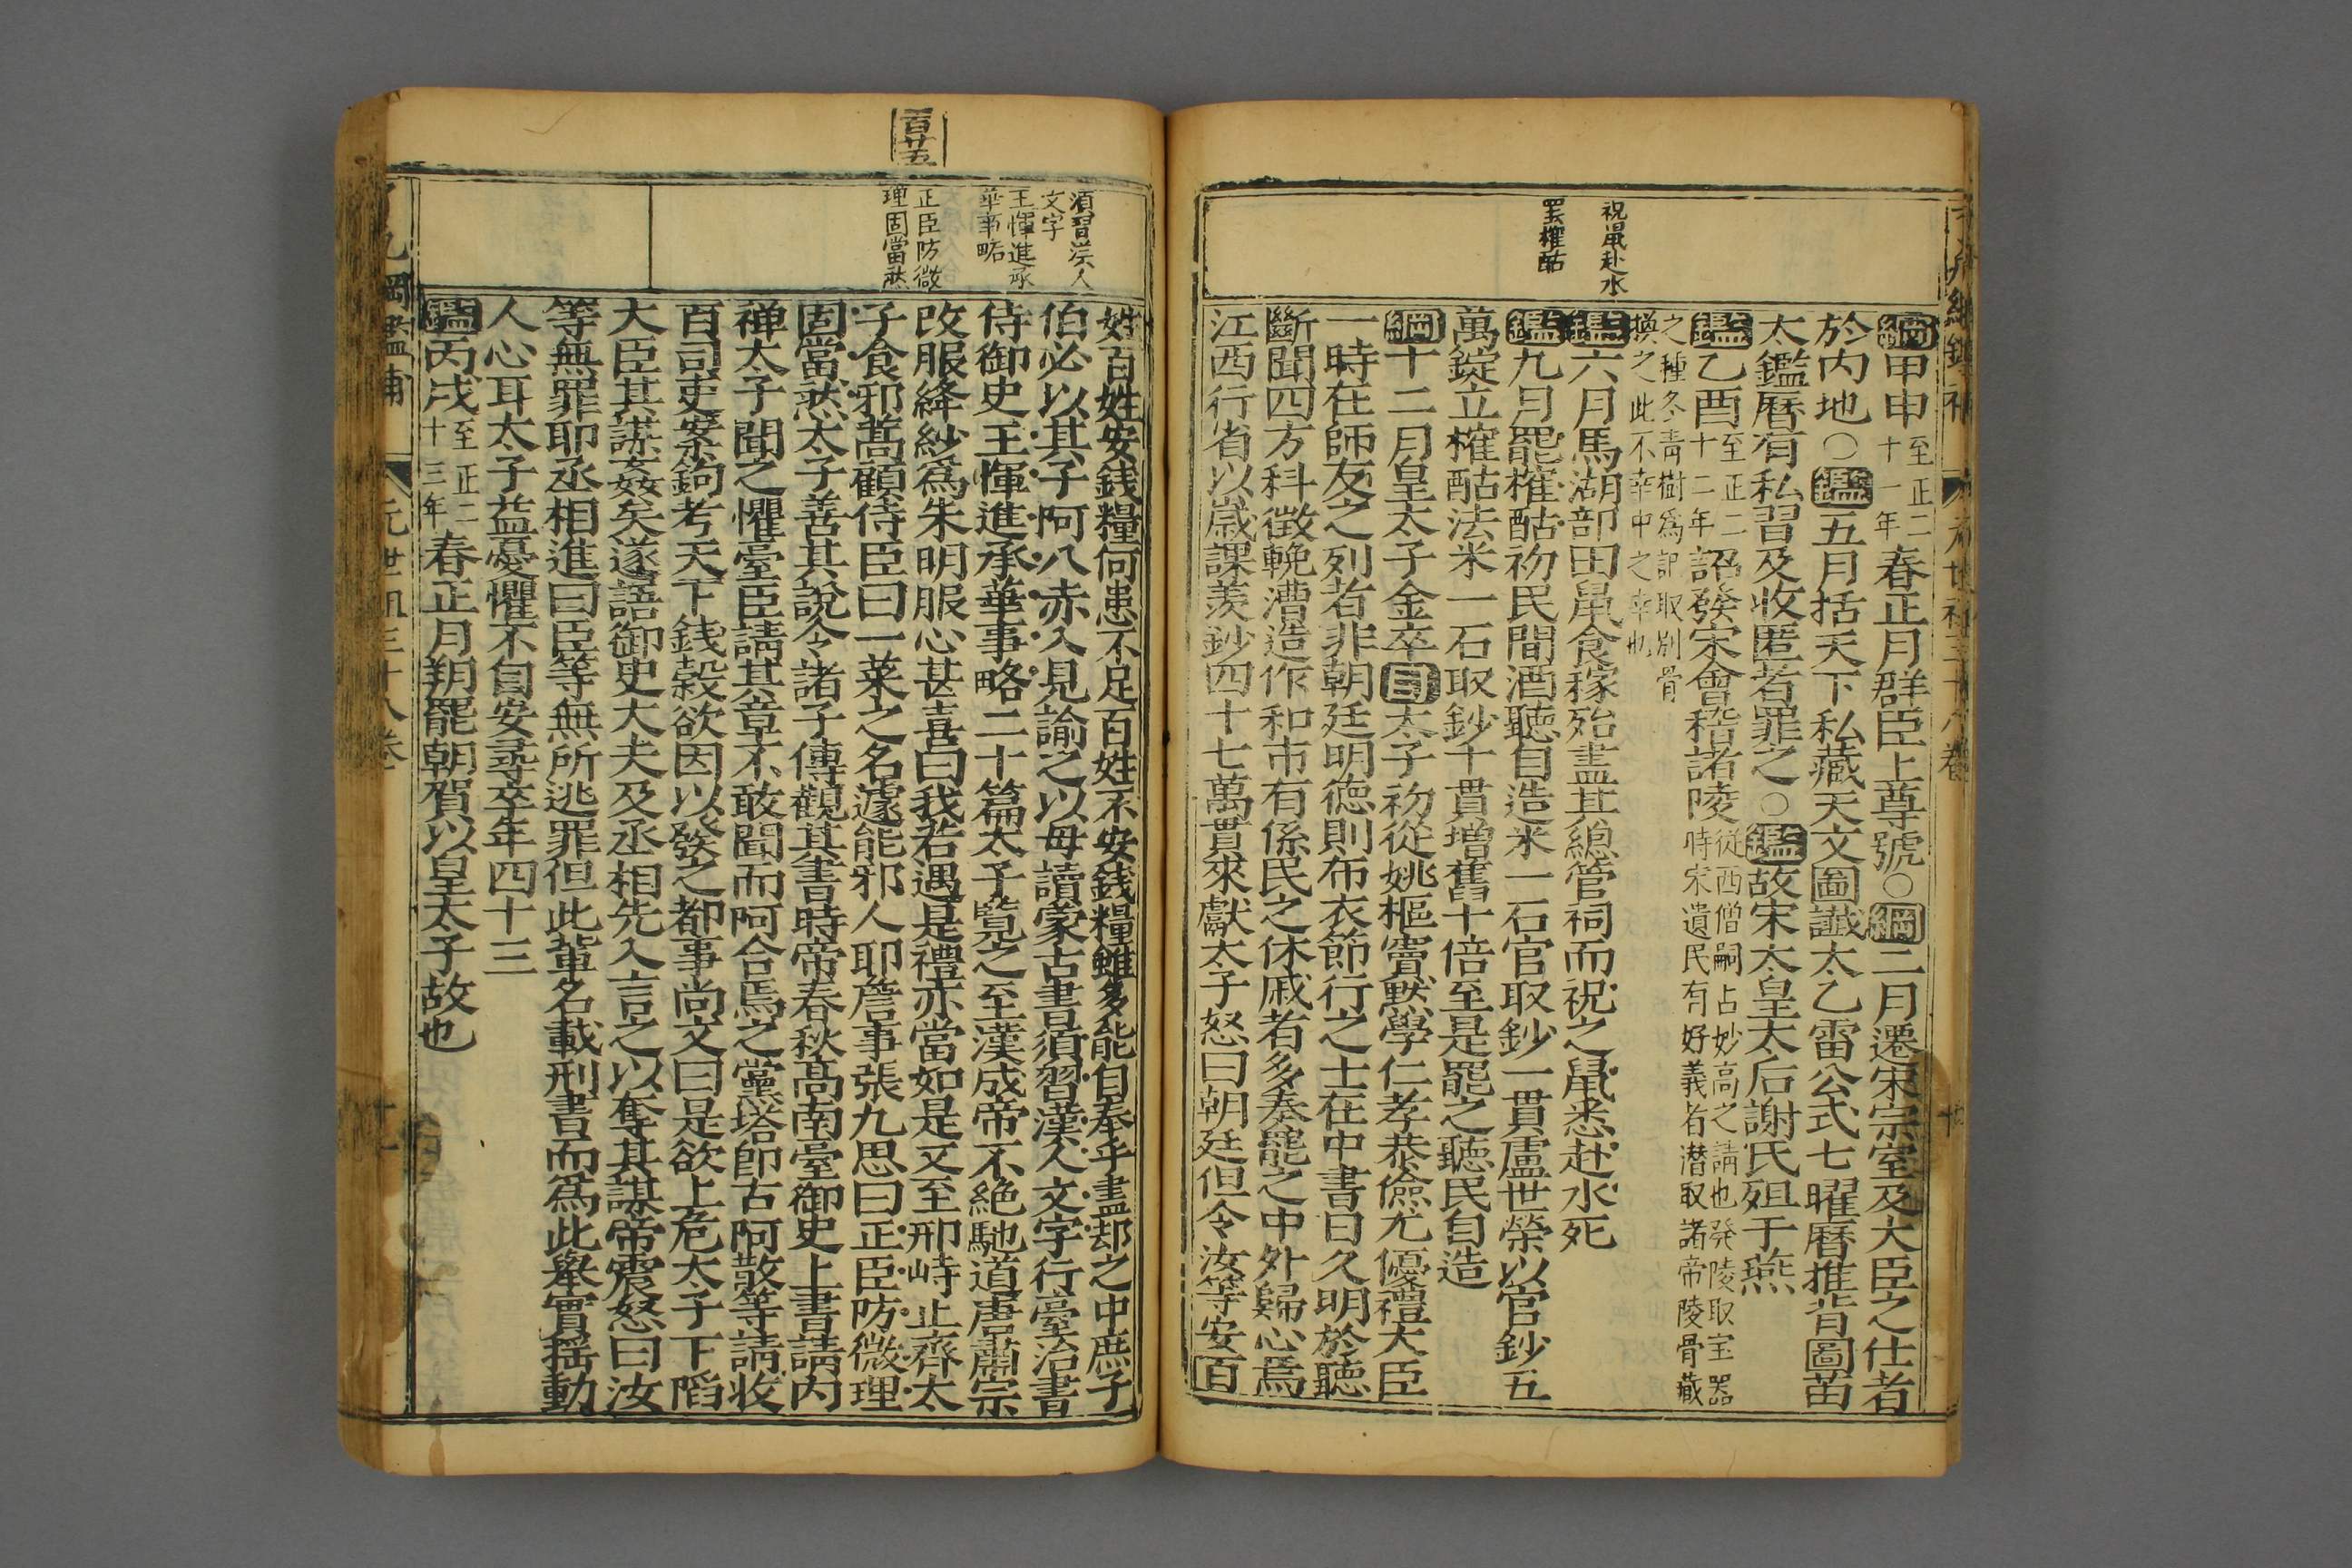 祝鼠赴水
罷榷酤
綱甲申至正二十一年春正月群臣上尊號○綱二月遷宋宗室及大臣之仕者
於内地○鑑五月括天下私藏天文圖讖太乙雷公式七曜曆推背圖苗
太鑑曆有私習及收匿者罪之○鑑故宋太皇太后謝氏殂于燕
鑑乙酉至正二十二年詔發宋會稽諸陵從西僧嗣占妙高之請也発陵取宝器時宋遺民有好義者潜取諸帝陵骨藏
之種冬青樹爲記取别骨換之此不幸中之幸也
鑑六月馬湖部田鼠食稼殆盡其緫管祠而祝之鼠悉赴水死
鑑九月罷榷酤初民間酒聽自造米一石官取鈔一貫盧世榮以官鈔五
萬錠立榷酤法米一石取鈔十貫增舊十倍至是罷之聽民自造
綱十二月皇太子金卒目太子初從姚樞竇默學仁孝恭儉尤優禮大臣
一時在師友之列者非朝廷明徳則布衣節行之士在中書日久明於聽
斷聞四方科徵輓漕造作和市有係民之休戚者多奏罷之中外歸心焉
江西行省以歳課羨鈔四十七萬貫來獻太子怒曰朝廷但令汝等安百
百廿五
須習漢人
文字
王惲進承
華事略
正臣防微
理固當然
姓百姓安銭糧何患不足百姓不安銭糧雖多能自奉乎盡却之中庶子
伯必以其子阿八赤入見諭之以毋讀蒙古書須習漢人文字行臺治書
侍御史王惲進承華事略二十篇太子覧之至漢成帝不絶馳道唐肅宗
改服絳紗爲朱明服心甚喜曰我若遇是禮亦當如是又至邢峙止齊太
子食邪蒿顧侍臣曰一菜之名遽能邪人耶詹事張九思曰正臣防微理
固當然太子善其說令諸子傳觀其書時帝春秋髙南臺御史上書請内
禅太子聞之懼臺臣請其章不敢聞而阿合馬之黨塔即古阿散等請收
百司吏案鉤考天下銭穀欲因以發之都事尚文曰是欲上危太子下陷
大臣其謀姦矣遂語御史大夫及丞相先入言之以奪其謀帝震怒曰汝
等無罪耶丞相進曰臣等無所逃罪但此軰名載刑書而爲此舉實揺動
人心耳太子益憂懼不自安尋卒年四十三
鑑丙戌至正二十三年春正月朔罷朝賀以皇太子故也
了凡綱鑑補
元世祖三十八卷